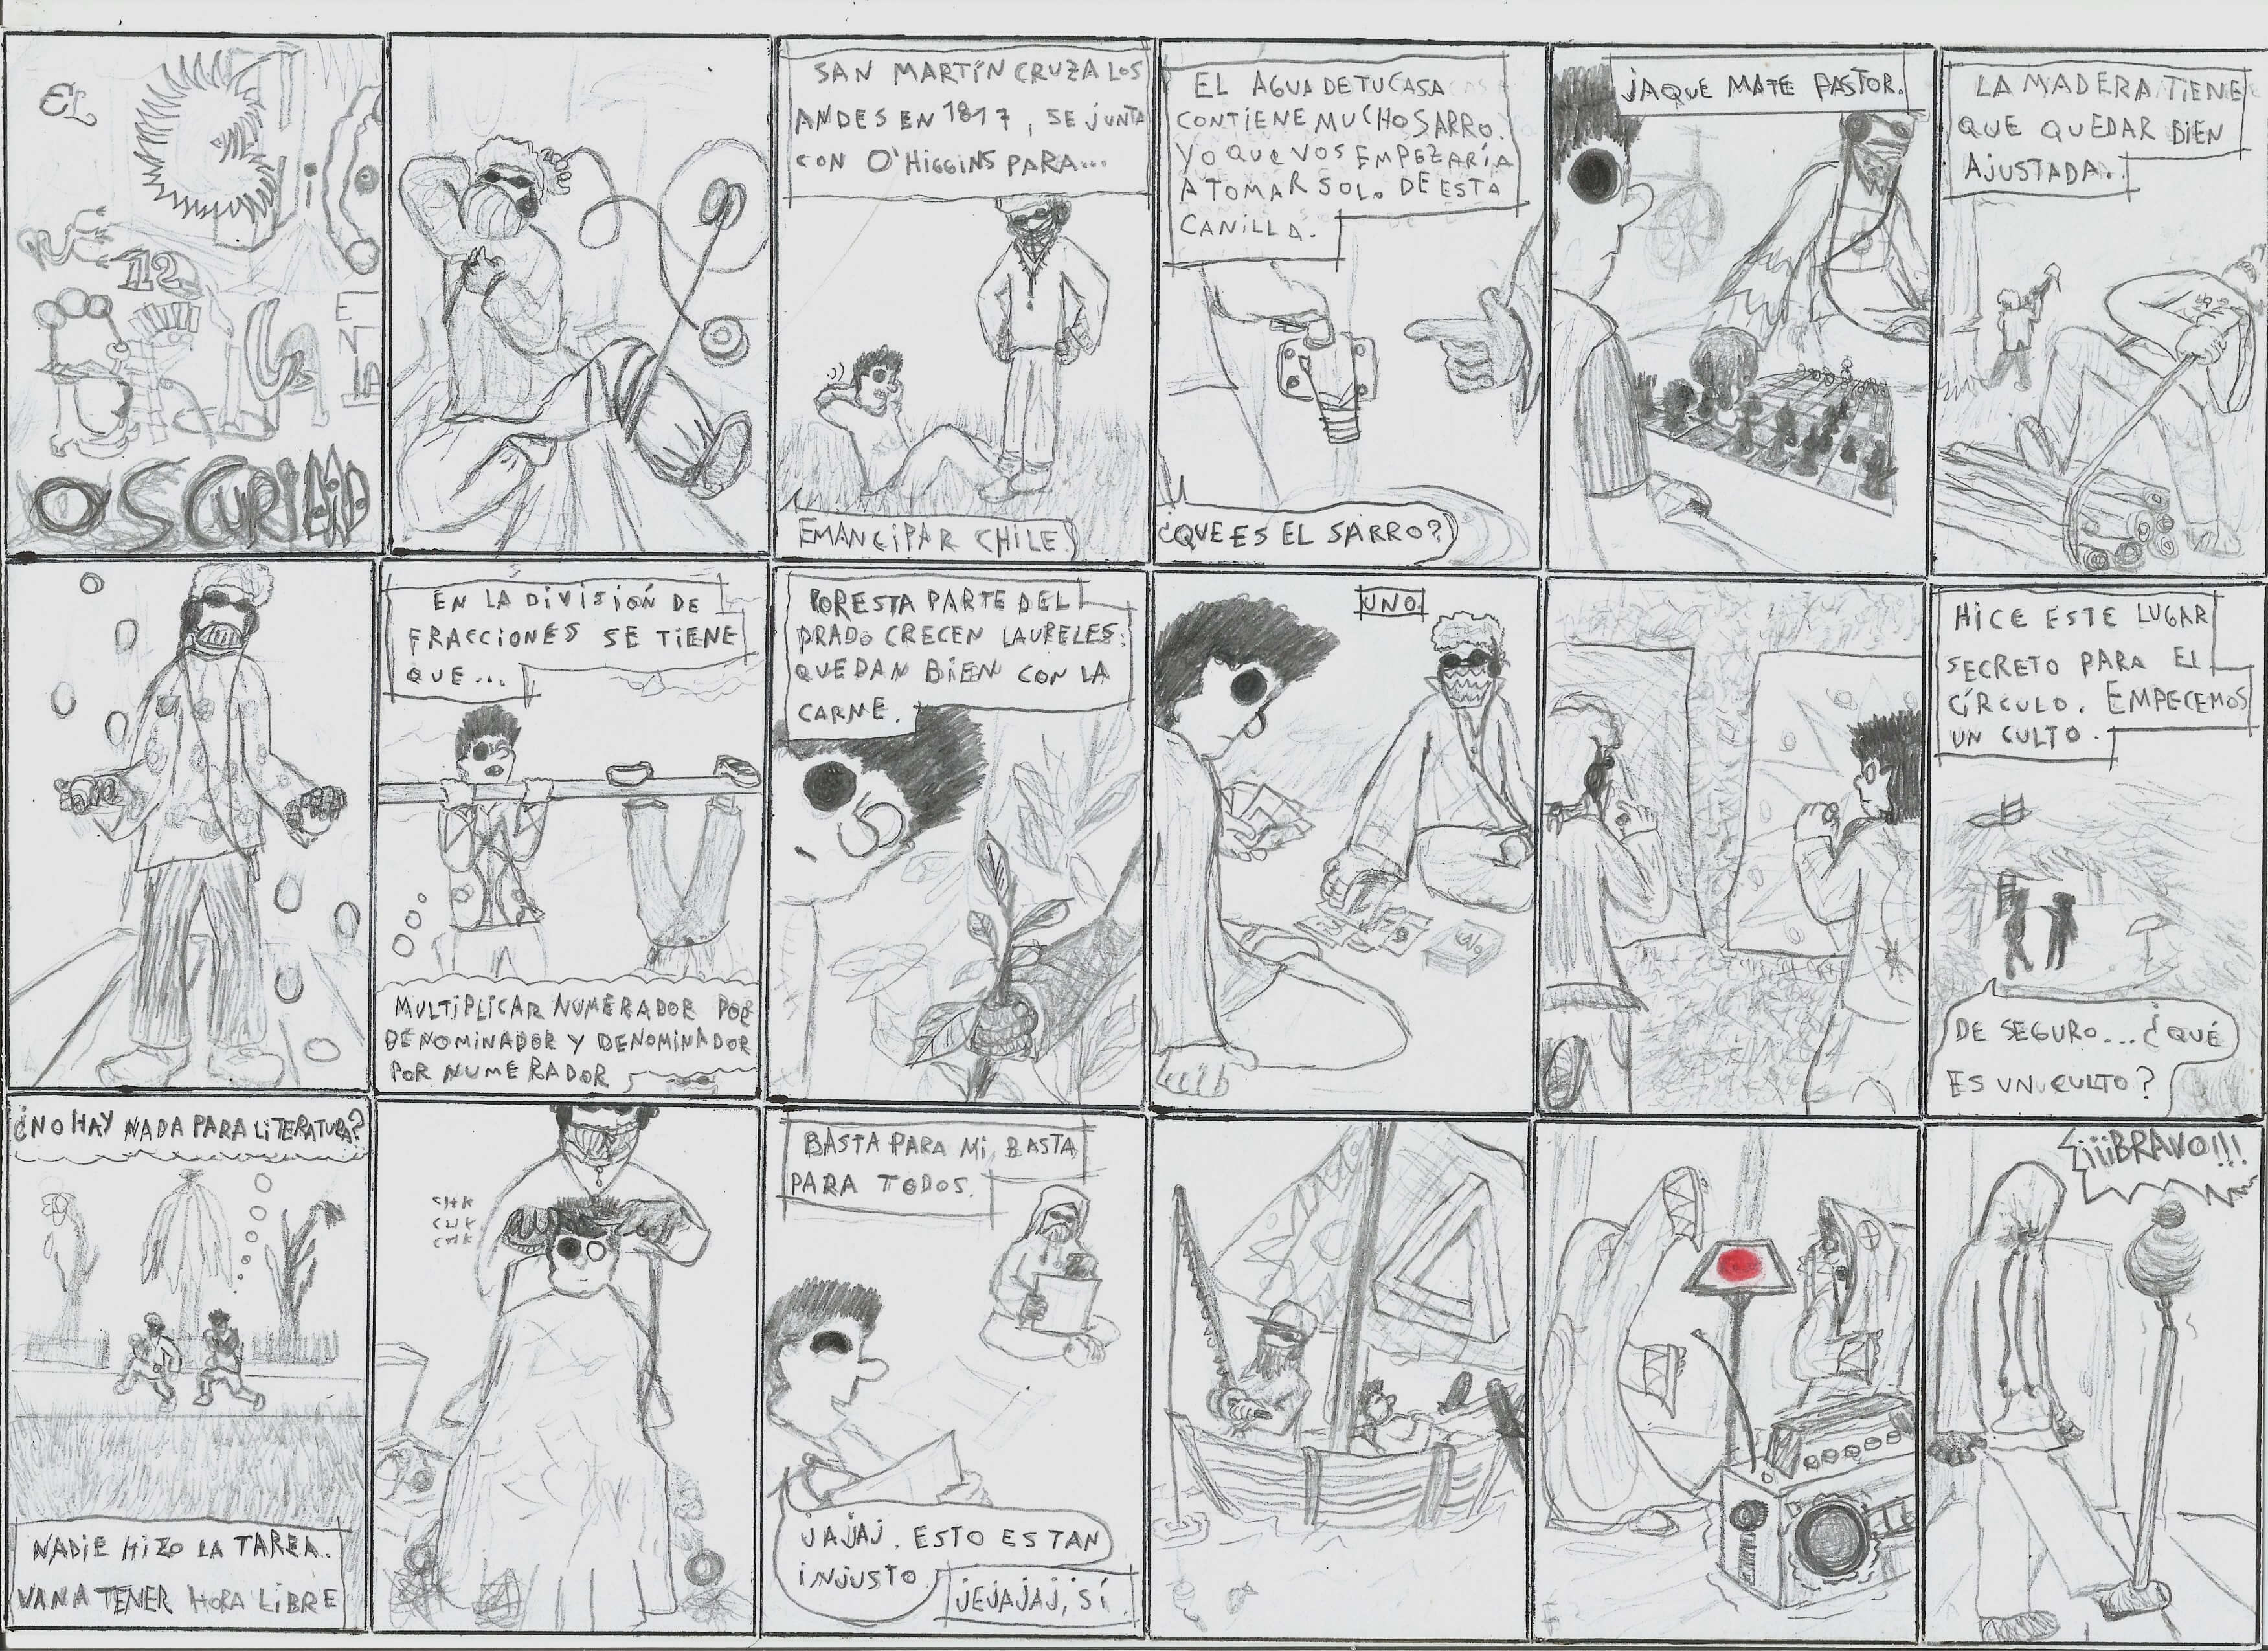 EL
OJO
QUE
EN
LA
OSCURIDAD
SAN MARTÍN CRUZA LOS
ANDES EN 1817, SE JUNTA
CON O'HIGGINS PARA...
EMANCIPAR CHILE.
EL AGUA DE TU CASA
CONTIENE MUCHO SARRO.
YO QUE VOS EMPEZARÍA
A TOMAR SOLO DE ESTA
CANILLA.
¿QUE ES EL SARRO?
JAQUE MATE PASTOR.
LA MADERA TIENE
QUE QUEDAR BIEN
AJUSTADA.
EN LA DIVISIÓN DE
FRACCIONES SE TIENE
QUE...
MULTIPLICAR NUMERADOR POR
DENOMINADOR Y DENOMINADOR
POR NUMERADOR
POR ESTA PARTE DEL
PRADO CRECEN LAURELES:
QUEDAN BIEN CON LA
CARNE.
UNO
HICE ESTE LUGAR
SECRETO PARA EL
CÍRCULO. EMPECEMOS
UN CULTO.
DE SEGURO... ¿QUÉ
ES UN CULTO?
¿NO HAY NADA PARA LITERATURA?
NADIE HIZO LA TAREA..
VAN A TENER HORA LIBRE
CHK
CHK
CHK
BASTA PARA MI, BASTA
PARA TODOS.
JAJAJ. ESTO ES TAN
INJUSTO
JEJAJAJ, SÍ.
¡¡¡BRAVO!!!